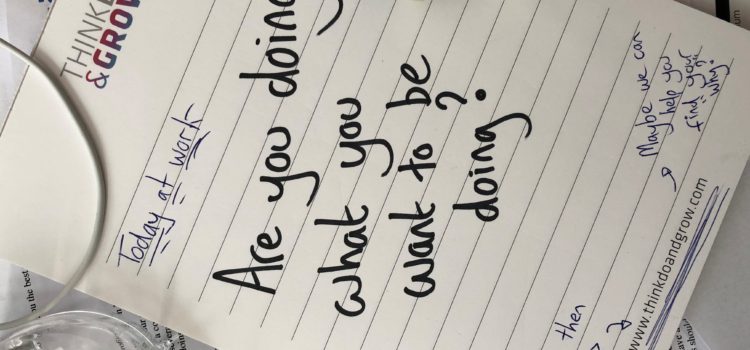 THINK
& GROW
Today at work
Are you doing
what you
want to be
doing?
Maybe we can
help you
find your
why?
then
www.thinkdoandgrow.com